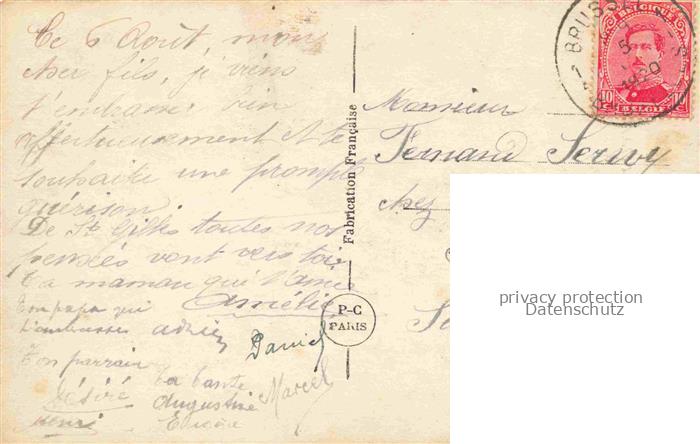 Ce 6 Août, mon
cher fils, je viens
t'embrasser bien
affectueusement et te
souhaite une prompte
guérison.
De St Gilles toutes nos
pensées vont vers toi
Ta maman qui t'aime
Amélie
Ton papa qui
t'embrasse
Daniel
Ton parrain
Désiré
Henri
ta tante
Augustine
Marcel
Fabrication Française
P-C
PARIS
Monsieur
Fernand Servy
chez
BELGIQUE
10 10
BELGIË
1920
privacy protection
Datenschutz